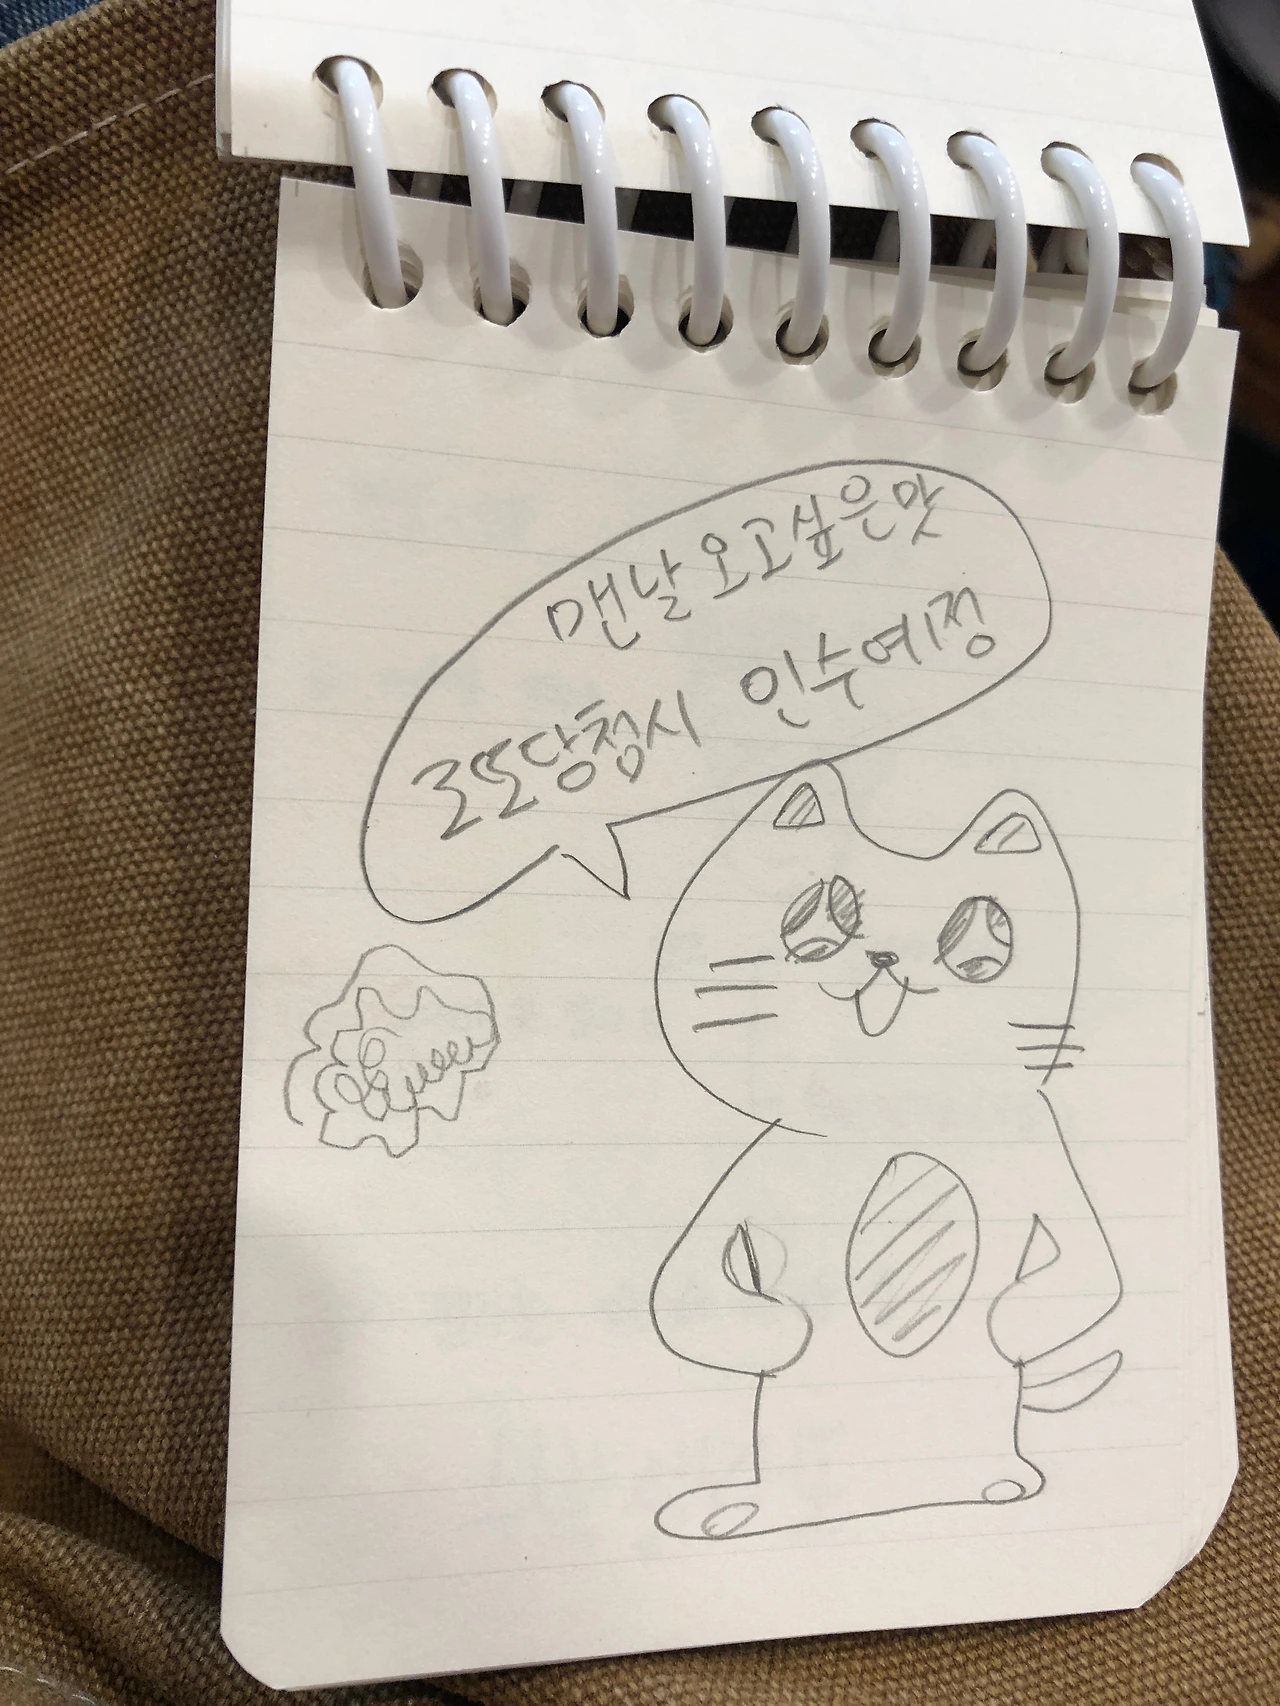 맨날 오고싶은 맛
로또당첨시 인수예정